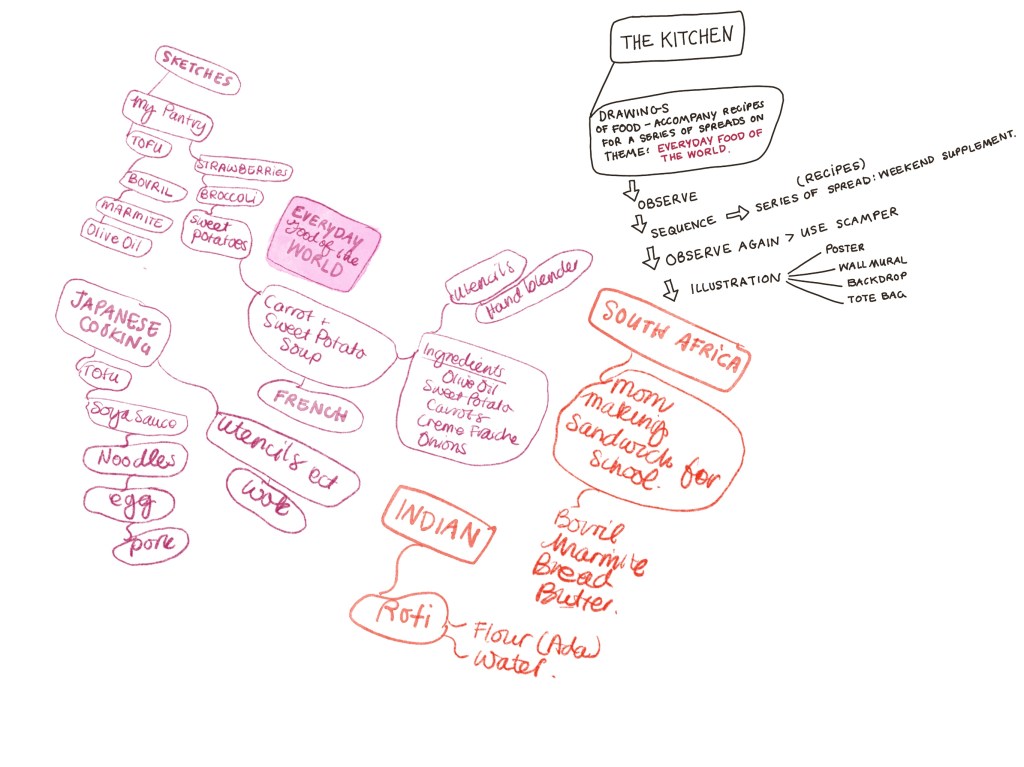 THE KITCHEN
DRAWINGS
OF FOOD - ACCOMPANY RECIPES
FOR A SERIES OF SPREADS ON
THEME: EVERYDAY FOOD OF
THE WORLD.
OBSERVE
SEQUENCE
(RECIPES)
SERIES OF SPREAD: WEEKEND SUPPLEMENT.
OBSERVE AGAIN > USE SCAMPER
ILLUSTRATION
POSTER
WALL MURAL
BACKDROP
TOTE BAG
SKETCHES
My Pantry
TOFU
BOVRIL
MARMITE
Olive Oil
STRAWBERRIES
BROCCOLI
Sweet
potatoes
EVERYDAY
food of the
WORLD
Carrot +
Sweet Potato
Soup
FRENCH
utensils
Hand blender
Ingredients
Olive Oil
Sweet Potato
Carrots
Creme Fraiche
Onions
JAPANESE
COOKING
TOFU
Soya Sauce
Noodles
egg
pork
utensils ect
wok
SOUTH AFRICA
mom
making
Sandwich for
School.
Bovril
Marmite
Bread
Butter.
INDIAN
Roti
Flour (Ada)
Water.